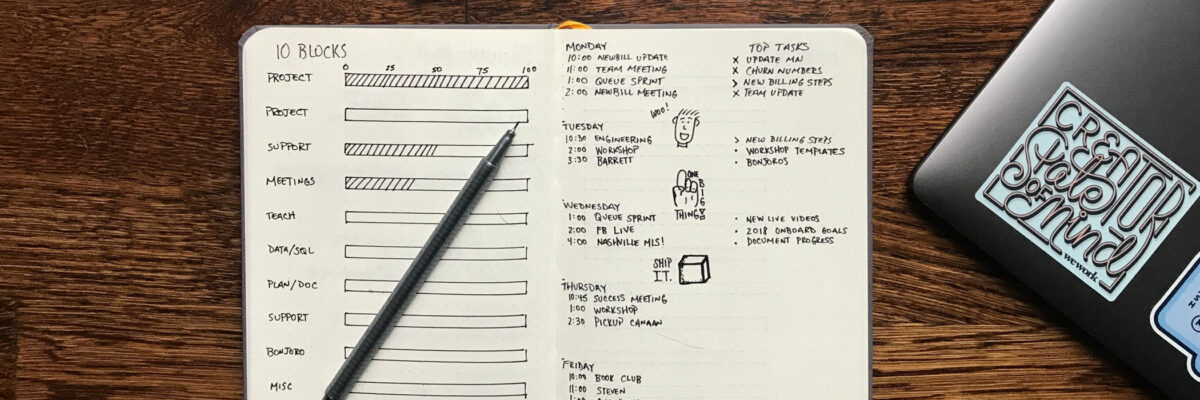 10 BLOCKS
0 25 50 75 100
PROJECT
PROJECT
SUPPORT
MEETINGS
TEACH
DATA/SQL
PLAN/DOC
SUPPORT
BONJORO
MISC
MONDAY
10:00 NEWBILL UPDATE
11:00 TEAM MEETING
1:00 QUEUE SPRINT
2:00 NEWBILL MEETING
TOP TASKS
X UPDATE MN
X CHURN NUMBERS
> NEW BILLING STEPS
X TEAM UPDATE
WOO!
TUESDAY
10:30 ENGINEERING
2:00 WORKSHOP
3:30 BARRETT
> NEW BILLING STEPS
• WORKSHOP TEMPLATES
• BONJOROS
ONE
BIG
THING
WEDNESDAY
1:00 QUEUE SPRINT
2:00 FB LIVE
4:00 NASHVILLE MLS!
• NEW LIVE VIDEOS
• 2018 ONBOARD GOALS
• DOCUMENT PROGRESS
SHIP
IT.
THURSDAY
10:45 SUCCESS MEETING
1:00 WORKSHOP
2:30 PICKUP CANAAN
FRIDAY
10:00 BOOK CLUB
11:00 STEVEN
CREATOR
State
OF
Mind
wework